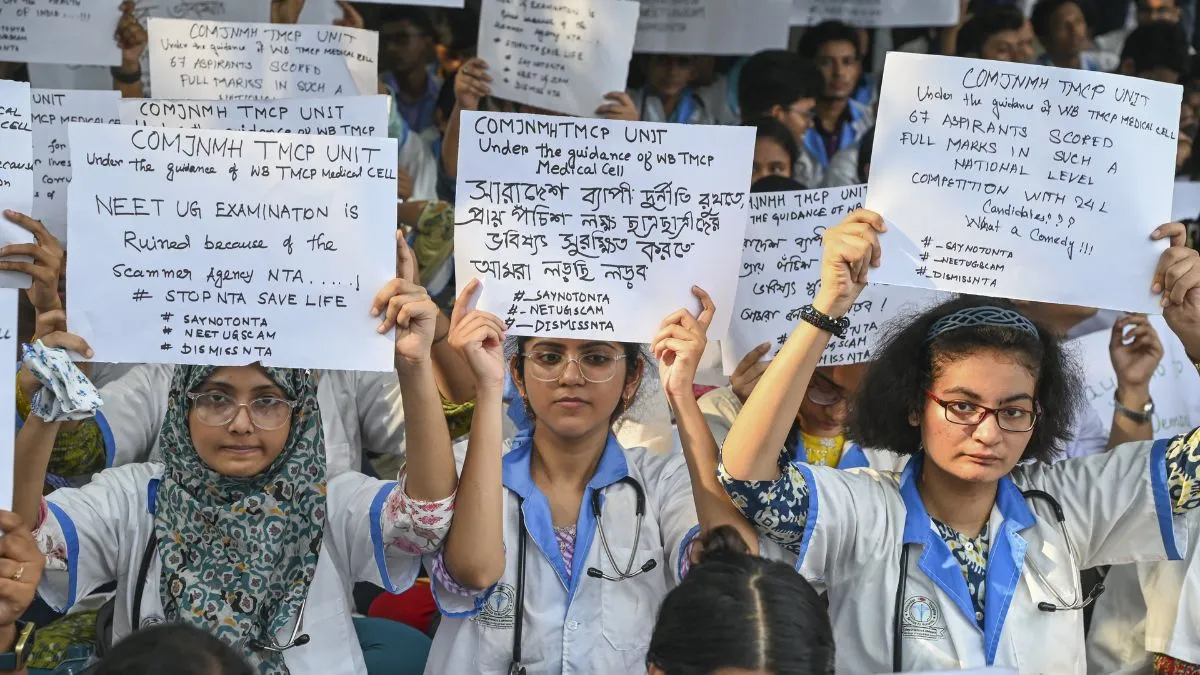 COMJNMH TMCP UNIT
Under the guidance of WB TMCP Medical Cell
67 ASPIRANTS SCORED
FULL MARKS IN SUCH A
NATIONAL
# STOPNTA SAVE LIFE
# SAYNOTONTA
# NEETUGSCAM
# DISMISSNTA
COMJNMH TMCP UNIT
COMJNMH TMCP UNIT
Under the guidance of WB TMCP Medical CELL
NEET UG EXAMINATION is
Ruined because of the
Scammer Agency NTA.....!
# STOPNTA SAVE LIFE
# SAYNOTONTA
# NEETUGSCAM
# DISMISSNTA
COMJNMH TMCP UNIT
Under the guidance of WB TMCP
Medical Cell
সারাদেশ ব্যাপী দুর্নীতি রুখতে,
প্রায় পঁচিশ লক্ষ ছাত্রছাত্রীদের
ভবিষ্যৎ সুরক্ষিত করতে
আমরা লড়ছি লড়ব
#_SAYNOTONTA
#_NETUGSCAM
#_DISMISSNTA
COMJNMH TMCP UNIT
Under the guidance of WB TMCP MEDICAL CELL
67 ASPIRANTS SCORED
FULL MARKS IN SUCH A
NATIONAL LEVEL
COMPETITION WITH 24 L
Candidates???
What a Comedy!!!
#_SAYNOTONTA
#_NEETUGSCAM
#_DISMISSNTA